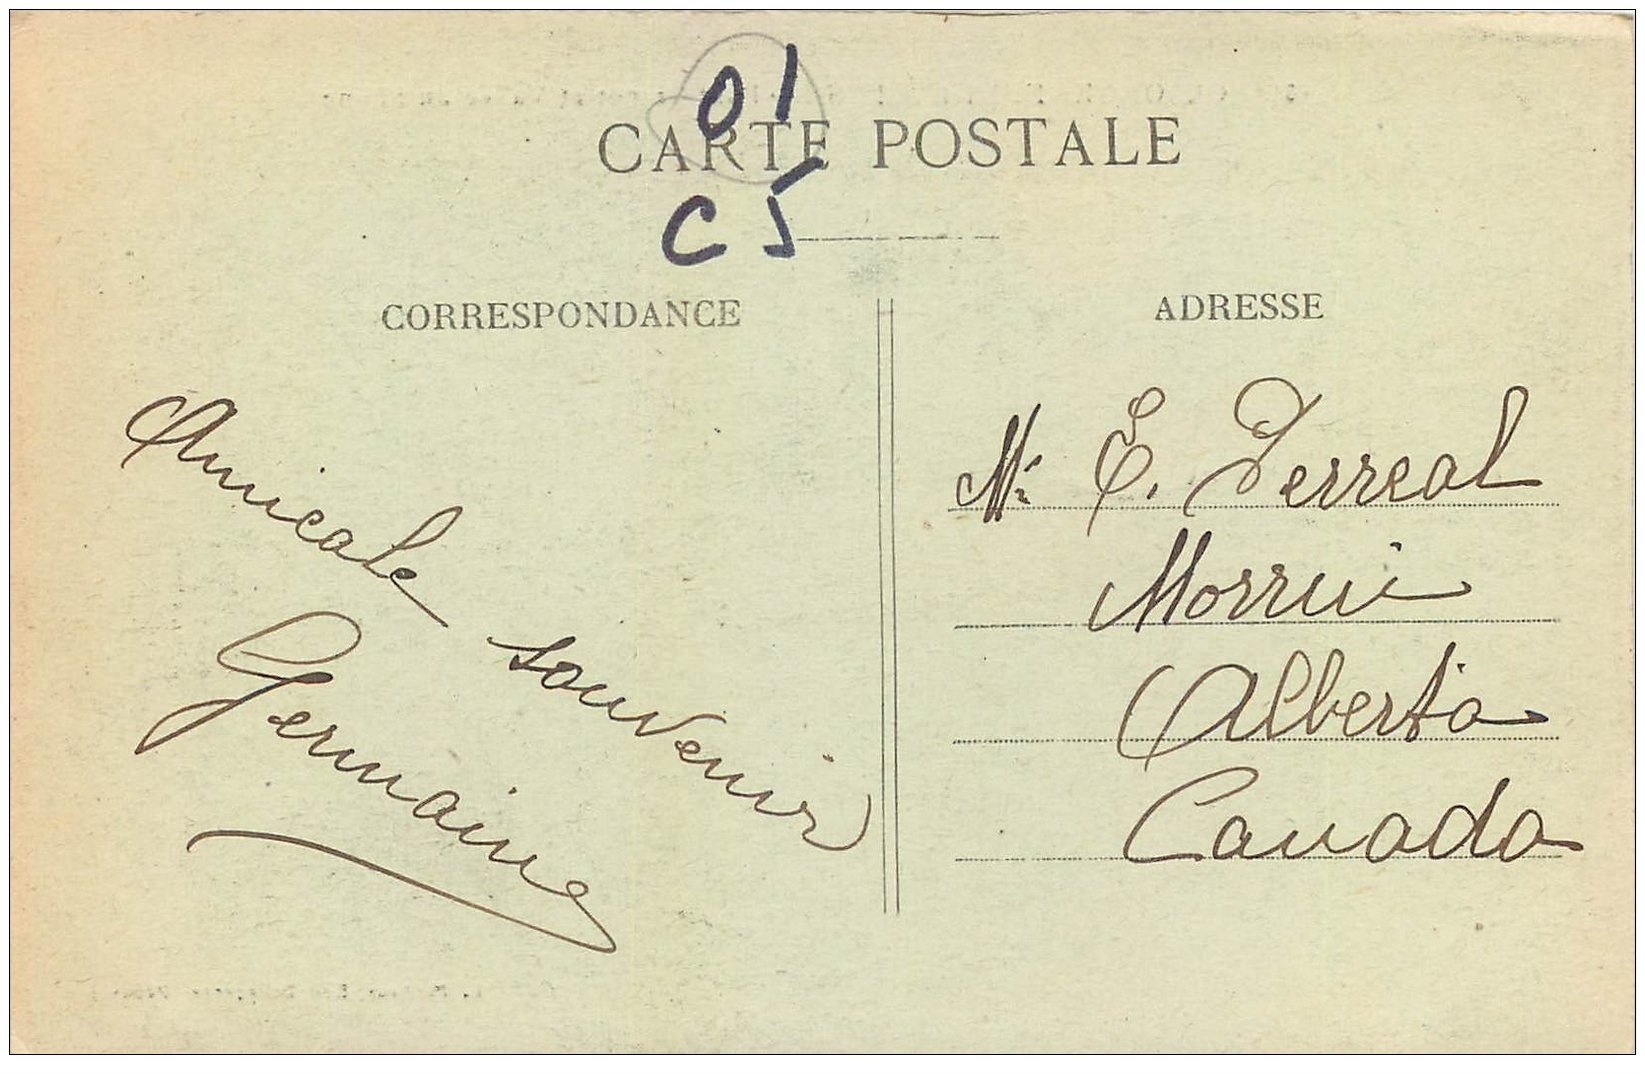 01
CARTE POSTALE
C5
CORRESPONDANCE
Amicale souvenir
Germaine
ADRESSE
Mr E. Ferreal
Morrin
Alberta
Canada